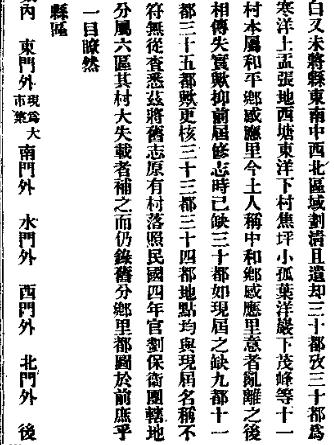 白又未將縣東南中西北區域劃淸且遺却三十都攷三十都爲
寒洋上孟張地西塘東洋下村焦坪小孤葉洋巖下茂峰等十一
村本屬和平鄉感應里今土人稱中和鄉感應里意者亂離之後
相傳失實歟抑前屆修志時已缺三十都如現屆之缺九都十一
都三十五都歟更核三十三都三十四都地點均與現屆名稱不
符無從查悉茲將舊志原有村落照民國四年官劃保衞團轄地
分屬六區其村大失載者補之而仍錄舊分鄉里都圖於前庶乎
一目瞭然
縣區
內 東門外現爲大市集 南門外 水門外 西門外 北門外 後